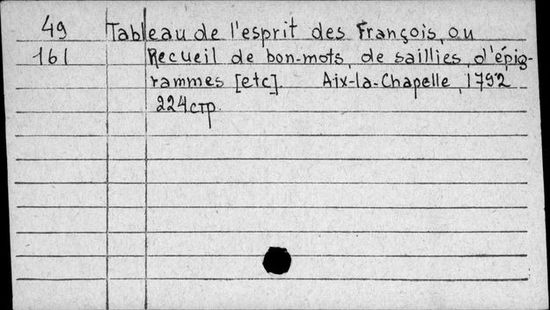 49 Tableau de l'esprit des François, ou
161 Recueil de bon-mots, de saillies, d'épig-
rammes [etc]. Aix-la-Chapelle, 1792
224 стр.